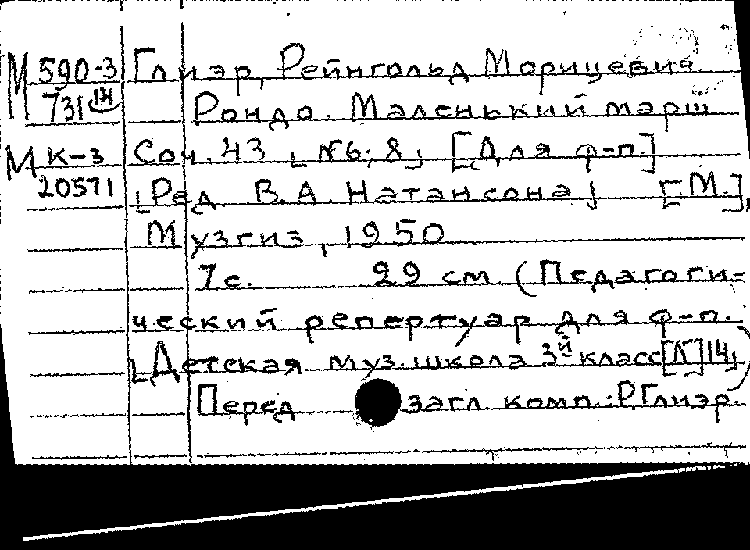 М 590-3 Глиэр, Рейнгольд Морицевич
731 14 Рондо. Маленький марш
М К-3 Соч. 43, №6; 8, [Для ф-п.]
20571 [Ред. В.А. Натансона] [М.],
Музгиз, 1950
7с. 29 см (Педагоги-
ческий репертуар для ф-п.
[Детская муз. школа 3й класс [Л] 14)
Перед загл. комп.: Р. Глиэр.